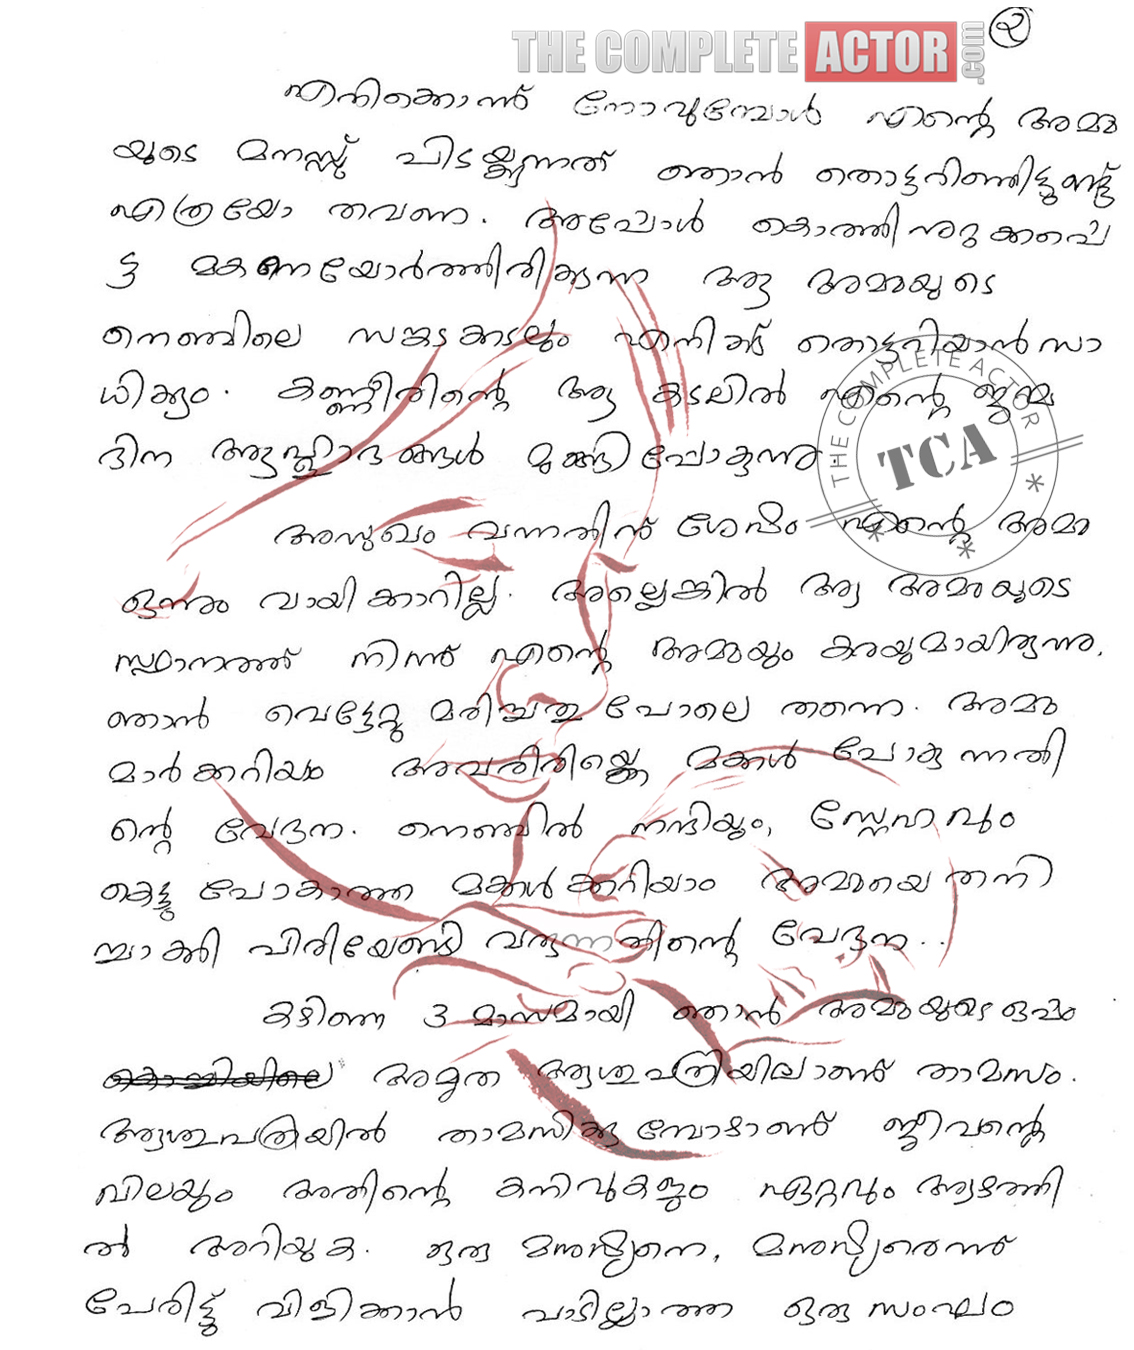 THE COMPLETE ACTOR .com
൨
എനിക്കൊന്ന് നോവുമ്പോൾ എന്റെ അമ്മ
യുടെ മനസ്സ് പിടയ്ക്കുന്നത് ഞാൻ തൊട്ടറിഞ്ഞിട്ടുണ്ട്
എത്രയോ തവണ. അപ്പോൾ കൊത്തിനുറുക്കപ്പെ
ട്ട മകനെയോർത്തിരിക്കുന്ന ആ അമ്മയുടെ
നെഞ്ചിലെ സങ്കടക്കടലും എനിക്ക് തൊട്ടറിയാൻ സാ
ധിക്കും. കണ്ണീരിന്റെ ആ കടലിൽ എന്റെ ജന്മ
ദിന ആഹ്ലാദങ്ങൾ മുങ്ങിപ്പോകുന്നു.
THE COMPLETE ACTOR
TCA
അസുഖം വന്നതിന് ശേഷം എന്റെ അമ്മ
ഒന്നും വായിക്കാറില്ല. അല്ലെങ്കിൽ ആ അമ്മയുടെ
സ്ഥാനത്ത് നിന്ന് എന്റെ അമ്മയും കരയുമായിരുന്നു.
ഞാൻ വെട്ടേറ്റു മരിച്ചതു പോലെ തന്നെ. അമ്മ
മാർക്കറിയാം അവരിരിയ്ക്കെ മക്കൾ പോകുന്നതി
ന്റെ വേദന. നെഞ്ചിൽ നന്ദിയും, സ്നേഹവും
കെട്ടു പോകാത്ത മക്കൾക്കറിയാം അമ്മയെ തനി
ച്ചാക്കി പിരിയേണ്ടി വരുന്നതിന്റെ വേദന..
കഴിഞ്ഞ 3 മാസമായി ഞാൻ അമ്മയുടെ ഒപ്പം
കൊച്ചിയിലെ അമൃത ആശുപത്രിയിലാണ് താമസം.
ആശുപത്രിയിൽ താമസിക്കുമ്പോഴാണ് ജീവന്റെ
വിലയും അതിന്റെ കനിവുകളും ഏറ്റവും ആഴത്തി
ൽ അറിയുക. ഒരു മനുഷ്യനെ, മനുഷ്യരെന്ന്
പേരിട്ട് വിളിക്കാൻ പാടില്ലാത്ത ഒരു സംഘം